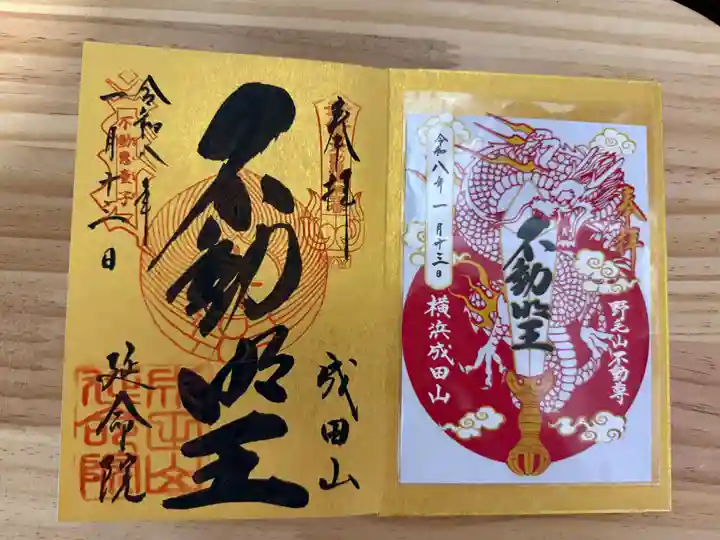 奉拝
成田山
不動明王
令和八年
一月十三日
不動恵童子
延命院
奉拝
野毛山不動尊
不動明王
令和八年一月十三日
横浜成田山